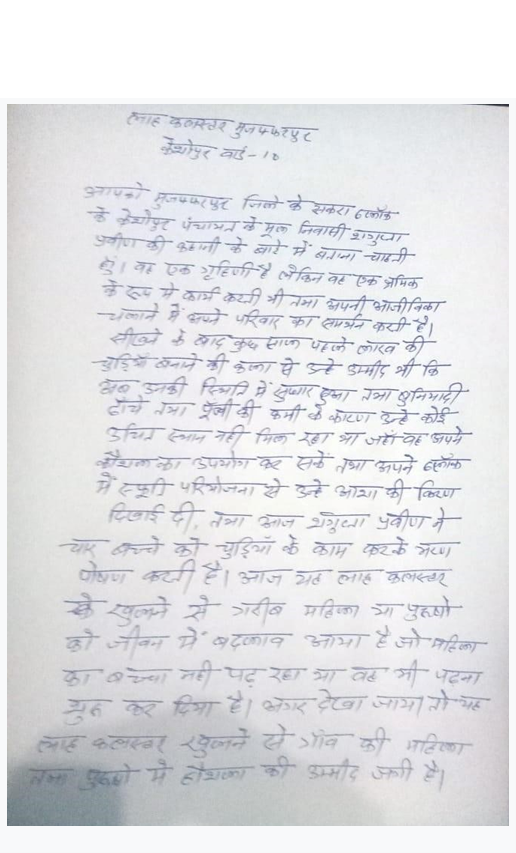 लाह कलस्टर मुजफ्फरपुर
केशोपुर वार्ड - 10
आपको मुजफ्फरपुर जिले के सकरा ब्लॉक
के केशोपुर पंचायत के मूल निवासी शगुफ्ता
प्रवीण की कहानी के बारे में बताना चाहती
हूं। वह एक गृहिणी है लेकिन वह एक श्रमिक
के रूप में कार्य करती थी तथा अपनी आजीविका
चलाने में अपने परिवार का समर्थन करती है।
सीखने के बाद कुछ साल पहले लाख की
चुड़ियाँ बनाने की कला से उन्हे उम्मीद थी कि
अब उनकी स्थिति में सुधार हुआ तथा बुनियादी
ढाँचे तथा पूँजी की कमी के कारण उन्हे कोई
उचित स्थान नही मिल रहा था जहाँ वह अपने
कौशल का उपयोग कर सके तथा अपने ब्लॉक
में स्फूर्ति परियोजना से उन्हे आशा की किरण
दिखाई दी, तथा आज प्रवीण ने
चार बच्चे को चुड़ियाँ के काम करके भरण
पोषण करती है। आज यह लाह कलस्टर
के खुलने से गरीब महिला या पुरुषो
को जीवन में बदलाव आया है जो महिला
का बच्चा नही पढ़ रहा था वह भी पढ़ना
शुरू कर दिया है। अगर देखा जाय तो यह
लाह कलस्टर खुलने से गाँव की महिला
तथा पुरुषो मे हौशला की उम्मीद जगी है।